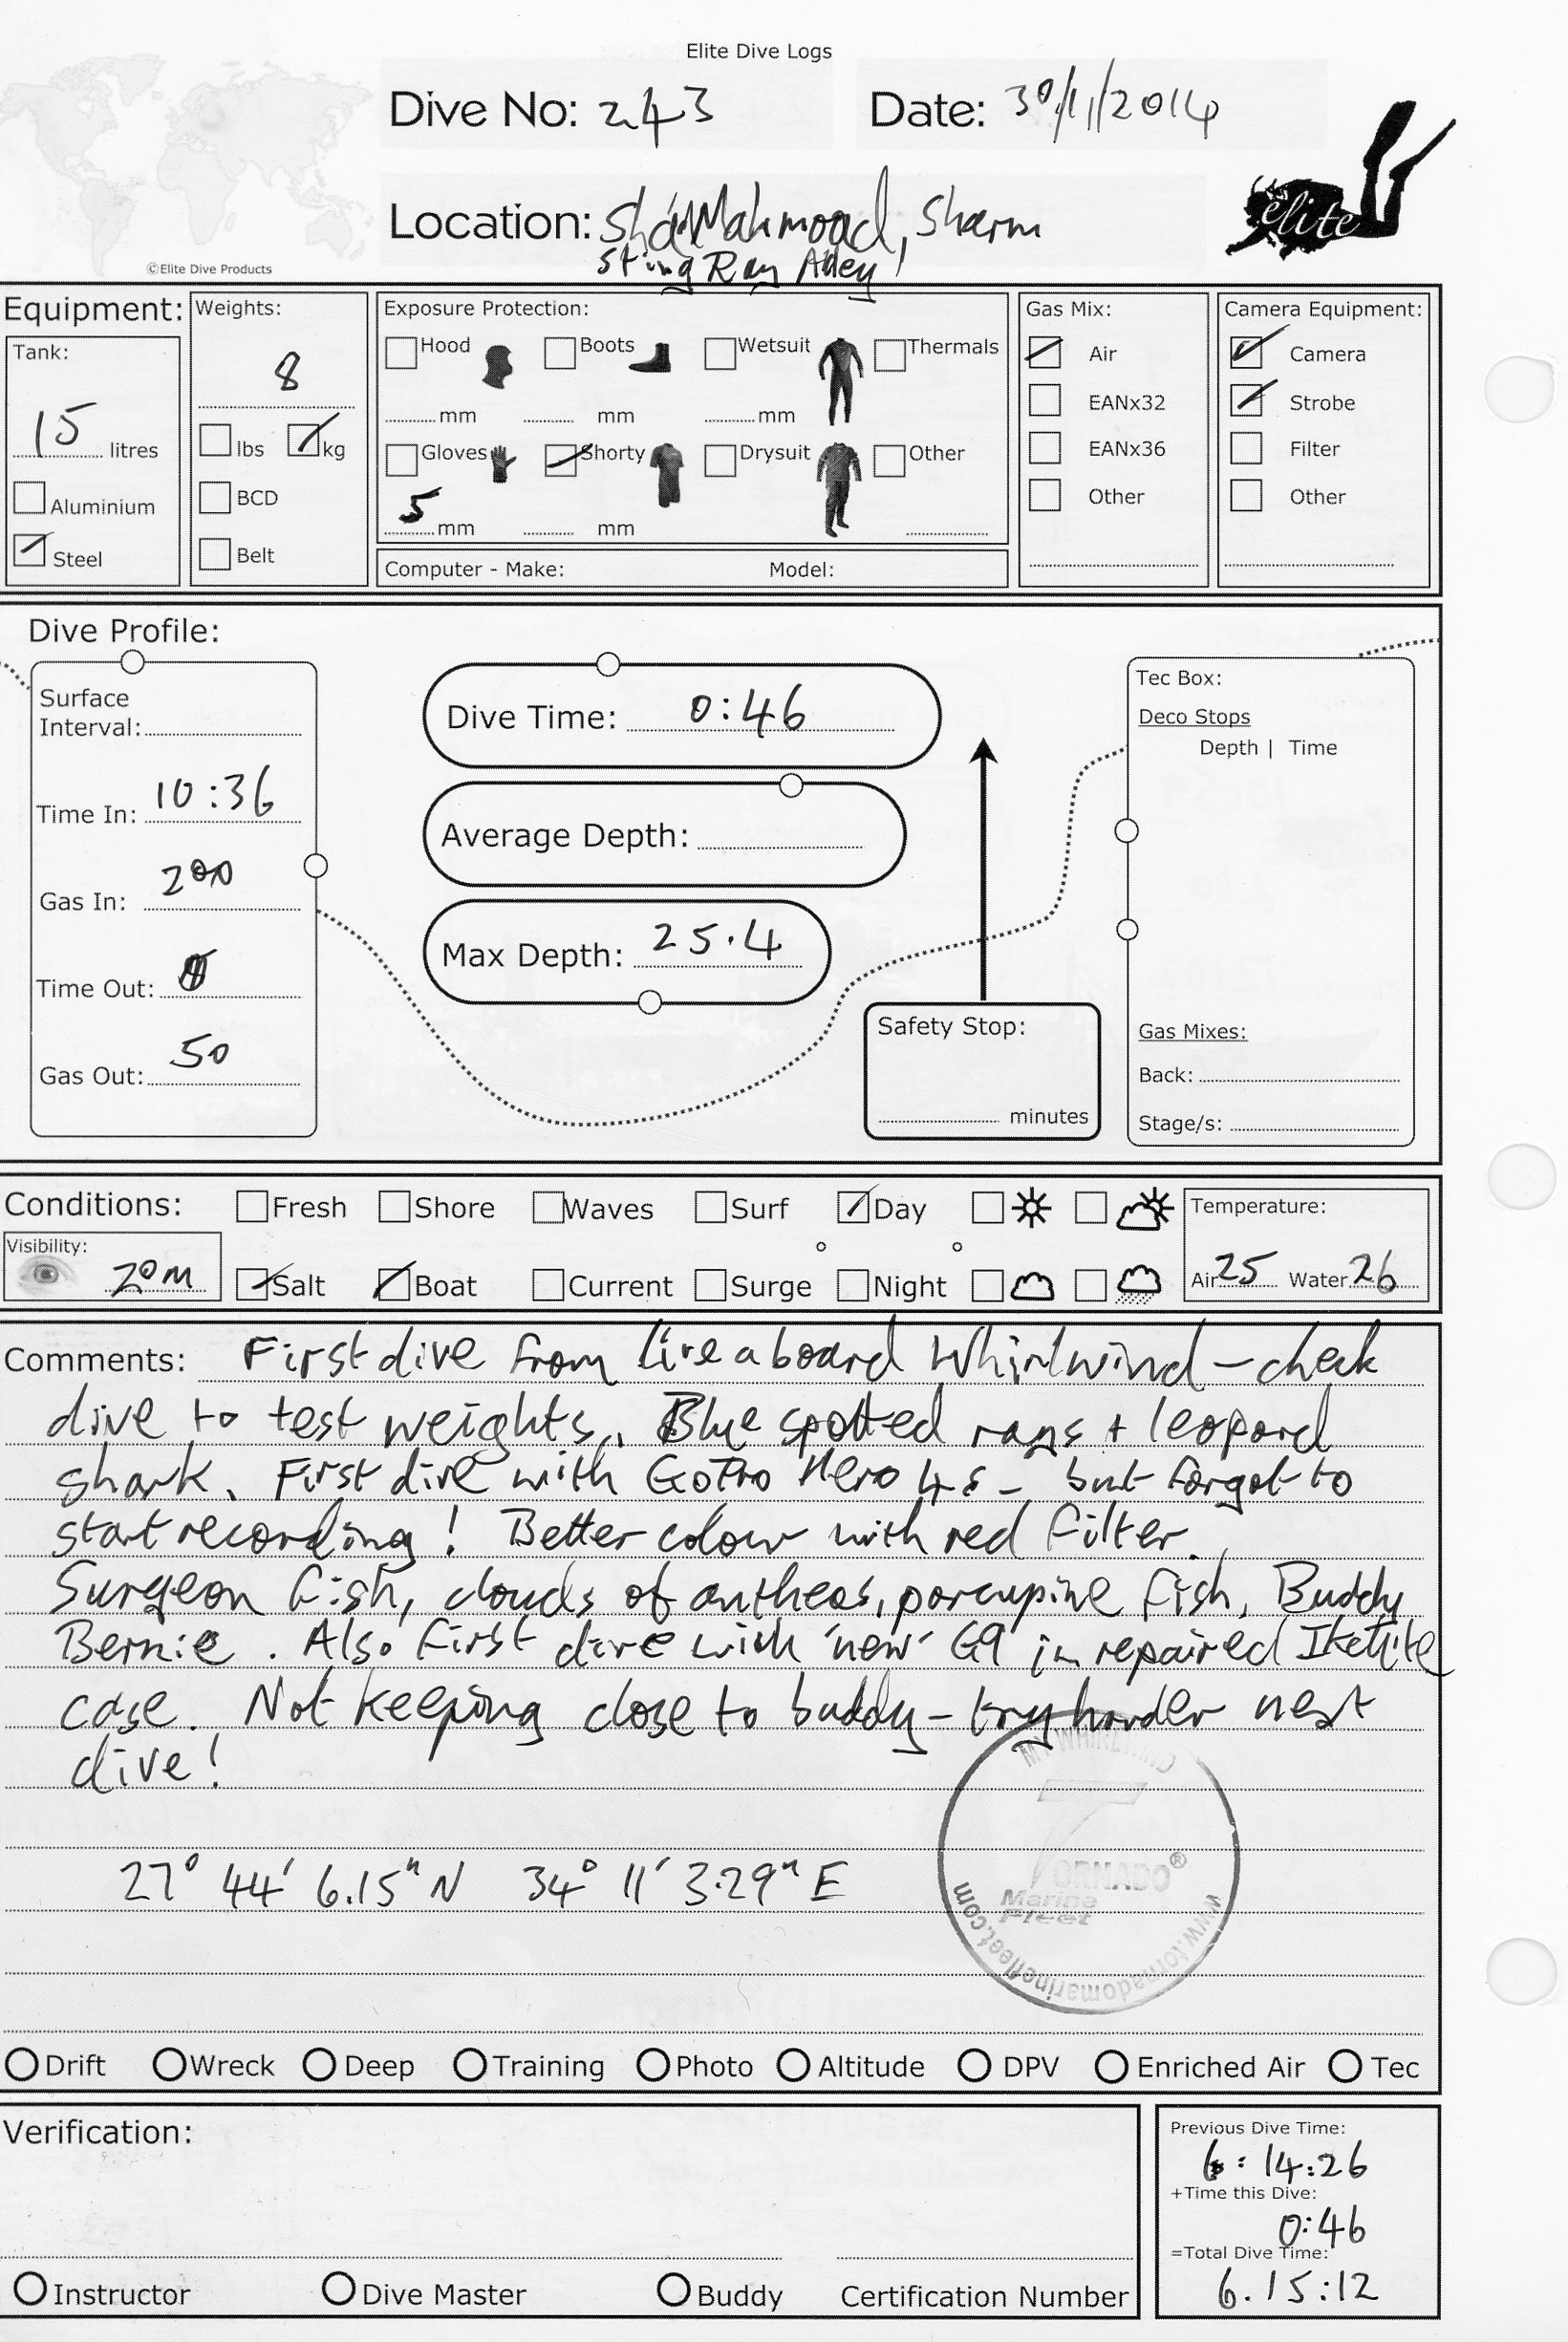 Elite Dive Logs
Dive No: 243
Date: 30/11/2014
Location: Sha'Mahmoad, Sharm
Sting Ray Alley!
élite
©Elite Dive Products
Equipment:
Tank:
15 litres
Aluminium
Steel
Weights:
8
lbs kg
BCD
Belt
Exposure Protection:
Hood Boots Wetsuit Thermals
mm mm mm
Gloves Shorty Drysuit Other
5 mm mm
Computer - Make: Model:
Gas Mix:
Air
EANx32
EANx36
Other
Camera Equipment:
Camera
Strobe
Filter
Other
Dive Profile:
Surface
Interval:
Time In: 10:36
Gas In: 200
Time Out:
Gas Out: 50
Dive Time: 0:46
Average Depth:
Max Depth: 25.4
Safety Stop:
minutes
Tec Box:
Deco Stops
Depth | Time
Gas Mixes:
Back:
Stage/s:
Conditions:
Fresh Shore Waves Surf Day
Visibility:
20m
Salt Boat Current Surge Night
Temperature:
Air 25 Water 26
Comments: First dive from liveaboard Whirlwind – check
dive to test weights. Blue spotted rays + leopard
shark. First dive with GoPro Hero 4s – but forgot to
start recording! Better colour with red filter.
Surgeon fish, clouds of antheas, porcupine fish, Buddy
Bernie. Also first dive with 'new' G9 in repaired Ikelite
case. Not keeping close to buddy – try harder next
dive!
27° 44' 6.15" N 34° 11' 3.29" E
MY WHIRLWIND
TORNADO®
Marine
Fleet
www.tornadomarinefleet.com
Drift Wreck Deep Training Photo Altitude DPV Enriched Air Tec
Verification:
Instructor Dive Master Buddy Certification Number
Previous Dive Time:
6:14:26
+Time this Dive:
0:46
=Total Dive Time:
6.15:12